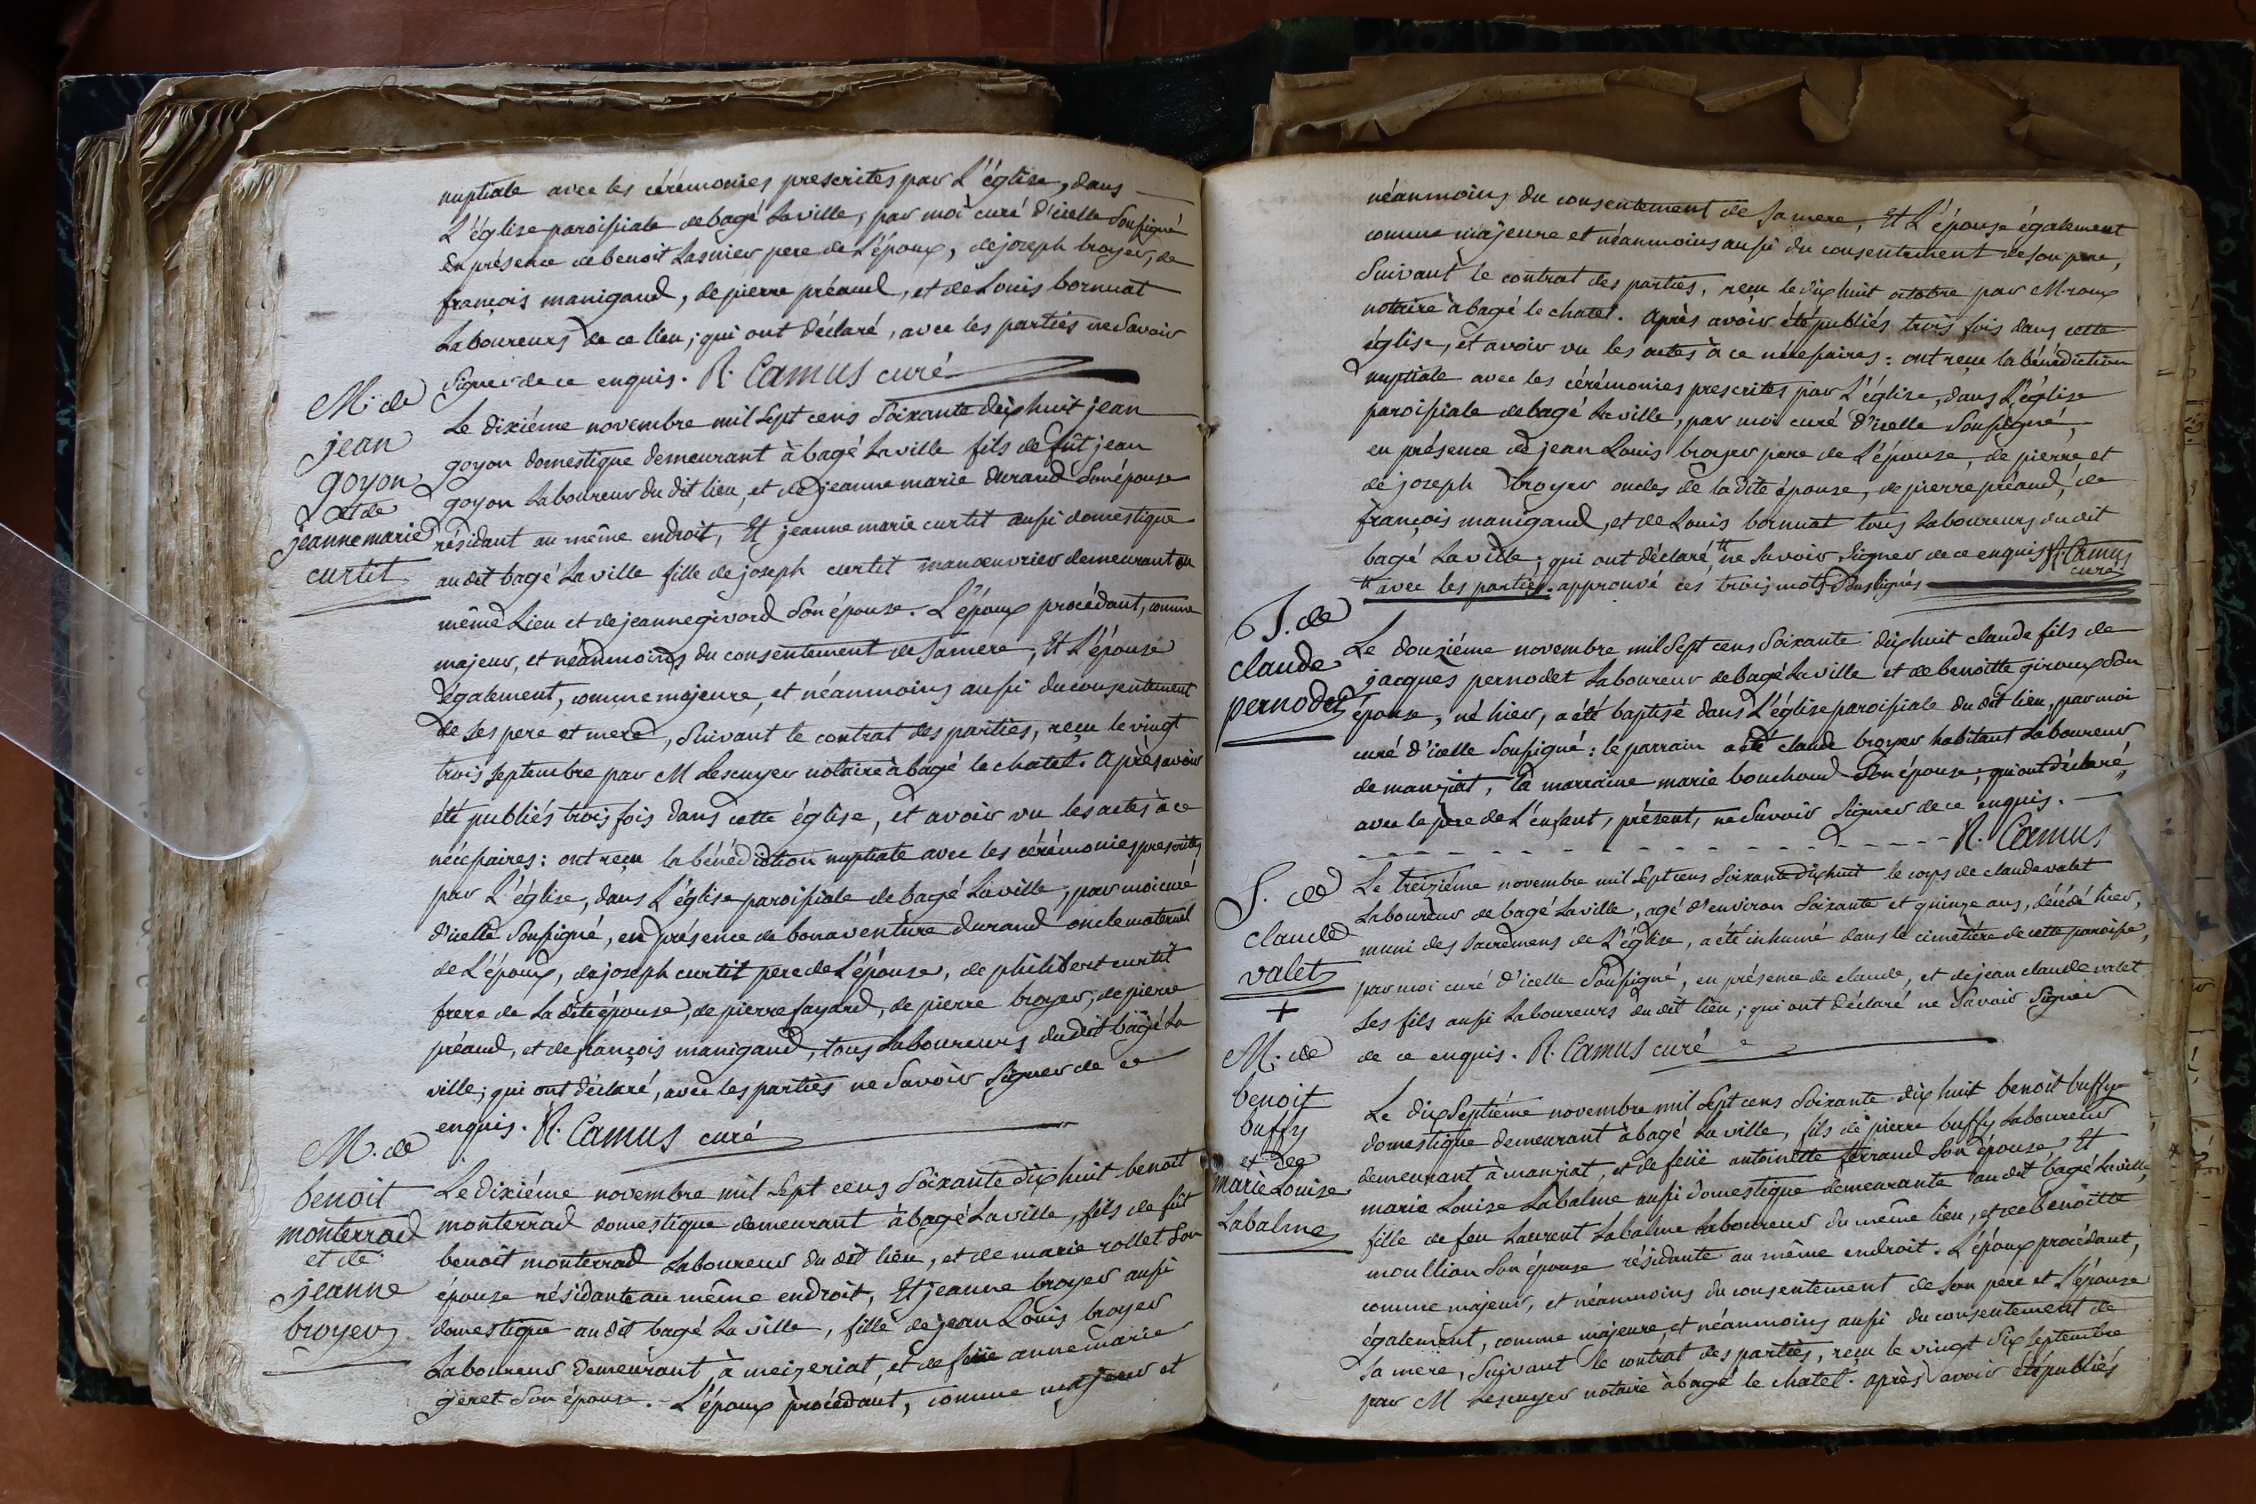 nuptiale avec les cérémonies prescrites par L'église, dans
L'église paroissiale de bagé Laville, par moi curé d'icelle Soussigné
En présence de benoit Lasnier pere de L'époux, de joseph broyer, de
françois manigand, de pierre préaud, et de Louis bornuat
Laboureurs de ce lieu; qui ont déclaré, avec les parties ne Savoir
Signer de ce enquis. R. Camus curé
M. de
jean
goyon
et de
jeanne marie
curtit
Le dixiéme novembre mil Sept cens Soixante dix huit jean
goyon domestique demeurant à bagé Laville fils de fût jean
goyon Laboureur du dit lieu, et de jeanne marie durand Son épouse
résidant au même endroit, Et jeanne marie curtit aussi domestique
au dit bagé Laville fille de joseph curtit manoeuvrier demeurant au
même Lieu et de jeanne givord Son épouse. L'époux procédant, comme
majeur, et néanmoins du consentement de Sa mere, Et L'épouse
également, comme majeure, et néanmoins aussi du consentement
de Ses pere et mere, Suivant le contrat des parties, reçu le vingt
trois Septembre par M Lescuyer notaire à bagé le chatel. Après avoir
été publiés trois fois dans cette église, et avoir vu les actes à ce
nécessaires: ont reçu la bénédiction nuptiale avec les cérémonies prescrites
par L'église, dans L'église paroissiale de bagé Laville, par moi curé
d'icelle Soussigné, en présence de bonaventure durand oncle maternel
de L'époux, de joseph curtit pere de L'épouse, de philibert curtit
frere de La dite épouse, de pierre fayard, de pierre broyer, de pierre
préaud, et de françois manigand, tous Laboureurs du dit bagé La
ville; qui ont déclaré, avec les parties ne Savoir Signer de ce
enquis. R. Camus curé
M. de
benoit
monterrad
et de
jeanne
broyer
Le dixiéme novembre mil Sept cens Soixante dix huit benoit
monterrad domestique demeurant à bagé Laville, fils de fût
benoit monterrad Laboureur du dit lieu, et de marie rollet Son
épouse résidante au même endroit, Et jeanne broyer aussi
domestique au dit bagé La ville, fille de jean Louis broyer
Laboureur demeurant à meizeriat, et de feüe anne marie
geret Son épouse. L'époux procédant, comme majeur et
néanmoins du consentement de Sa mere, Et L'épouse également
comme majeure et néanmoins aussi du consentement de Son pere,
Suivant le contrat des parties, reçu le dix huit octobre par M. roux
notaire à bagé le chatel. Après avoir été publiés trois fois dans cette
église, et avoir vu les actes à ce nécessaires: ont reçu la bénédiction
nuptiale avec les cérémonies prescrites par L'église, dans L'église
paroissiale de bagé Laville, par moi curé d'icelle Soussigné,
en présence de jean Louis broyer pere de L'épouse, de pierre et
de joseph broyer oncles de la dite épouse, de pierre préaud, de
françois manigand, et de Louis bornuat tous Laboureurs du dit
bagé Laville; qui ont déclaré, # ne Savoir Signer de ce enquis R. Camus
curé.
# avec les parties. approuvé ces trois mots Soulignés
J. de
claude
pernodet
Le douziéme novembre mil Sept cens Soixante dix huit claude fils de
jacques pernodet Laboureur de bagé Laville et de benoitte giroux Son
épouse, né hier, a été baptisé dans L'église paroissiale du dit lieu, par moi
curé d'icelle Soussigné: le parrain a été claude broyer habitant Laboureur
de manziat, la marraine marie bouchoud Son épouse; qui ont déclaré,
avec le pere de L'enfant, présent, ne Savoir Signer de ce enquis.
R. Camus
S. de
claude
valet
+
Le treiziéme novembre mil Sept cens Soixante dix huit le corps de claude valet
Laboureur de bagé Laville, agé d'environ Soixante et quinze ans, décédé hier,
muni des Sacremens de L'église, a été inhumé dans le cimetière de cette paroisse,
par moi curé d'icelle Soussigné, en présence de claude, et de jean claude valet
Ses fils aussi Laboureurs du dit lieu; qui ont déclaré ne Savoir Signer
de ce enquis. R. Camus curé
M. de
benoit
buffy
et de
marie Louise
Labalme
Le dix Septiéme novembre mil Sept cens Soixante dix huit benoit buffy
domestique demeurant à bagé La ville, fils de pierre buffy Laboureur
demeurant à manziat, et de feüe antoinette ferraud Son épouse, Et
marie Louise Labalme aussi domestique demeurante au dit bagé Laville,
fille de feu Laurent Labalme Laboureur du même lieu, et de benoitte
moullion Son épouse résidante au même endroit. L'époux procédant,
comme majeur, et néanmoins du consentement de Son pere et L'épouse
également, comme majeure, et néanmoins aussi du consentement de
Sa mere, Suivant le contrat des parties, reçu le vingt Six Septembre
par M Lescuyer notaire à bagé le chatel. Après avoir été publiés